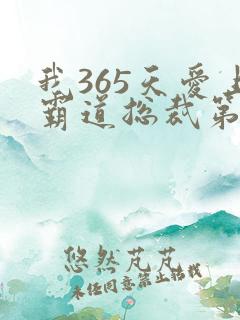 我365天爱上
霸道总裁第
悠然芃芃
未经同意禁止转载